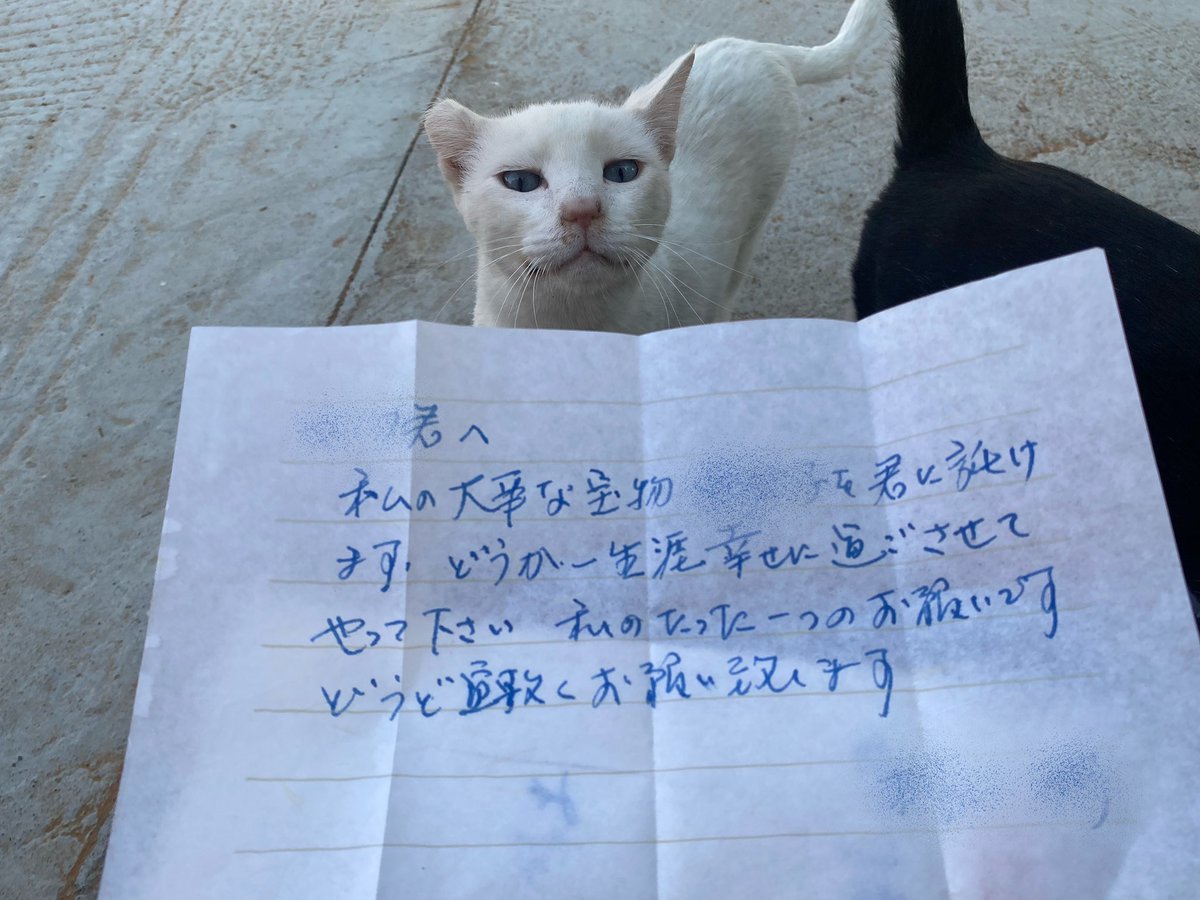 君へ
私の大事な宝物 を君に託け
ます。どうか一生涯幸せに過ごさせて
やって下さい 私のたった一つのお願いです
どうぞ宜敷くお願い致します